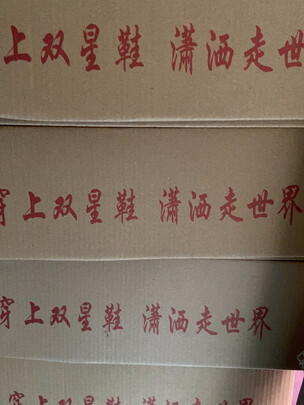 上双星鞋 潇洒走世
穿上双星鞋 潇洒走世界
穿上双星鞋 潇洒走世界
穿上双星鞋 潇洒走世界